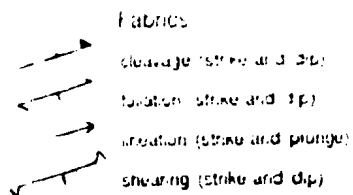 Fabrics
cleavage (strike and dip)
foliation (strike and dip)
lineation (strike and plunge)
shearing (strike and dip)